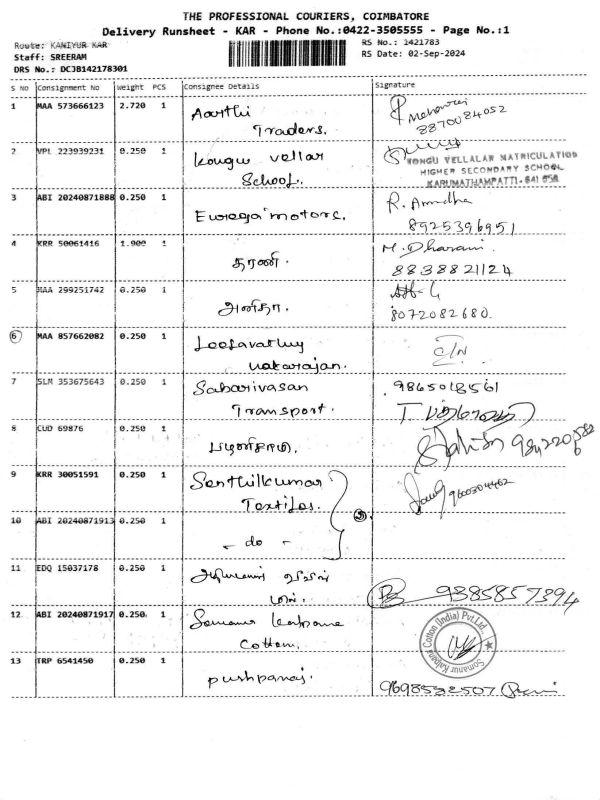 THE PROFESSIONAL COURIERS, COIMBATORE
Delivery Runsheet - KAR - Phone No.:0422-3505555 - Page No.:1
Route: KANIYUR KAR
Staff: SREERAM
DRS No.: DCJB142178301
RS No.: 1421783
RS Date: 02-Sep-2024
S NO Consignment No Weight PCS Consignee Details Signature
1 MAA 573666123 2.720 1 Aarthi
Traders.
8870084052
2 VPL 223939231 0.250 1 Kongu vellar
School.
KONGU VELLALAR MATRICULATION
HIGHER SECONDARY SCHOOL
KARUMATHAMPATTI - 641 658
3 ABI 20240871888 0.250 1 motors. R.
8925396951
4 KRR 50061416 1.900 1 தாரணி. M. Dharani.
8838821124
5 MAA 299251742 0.250 1 அனிதா.
8072082680.
6 MAA 857662082 0.250 1 Natarajan.
7 SLM 353675643 0.250 1 Sabarivasan 9865018561
Transport.
8 CUD 69876 0.250 1 பழனிசாமி.
9 KRR 30051591 0.250 1 Senthilkumar
Textiles.
10 ABI 20240871913 0.250 1 - do -
11 EDQ 15037178 0.250 1
9385857394
12 ABI 20240871917 0.250 1 Somanur Kalpana
Cotton.
Somanur Kalpana Cotton (India) Pvt.Ltd.
13 TRP 6541450 0.250 1 Pushparaj.